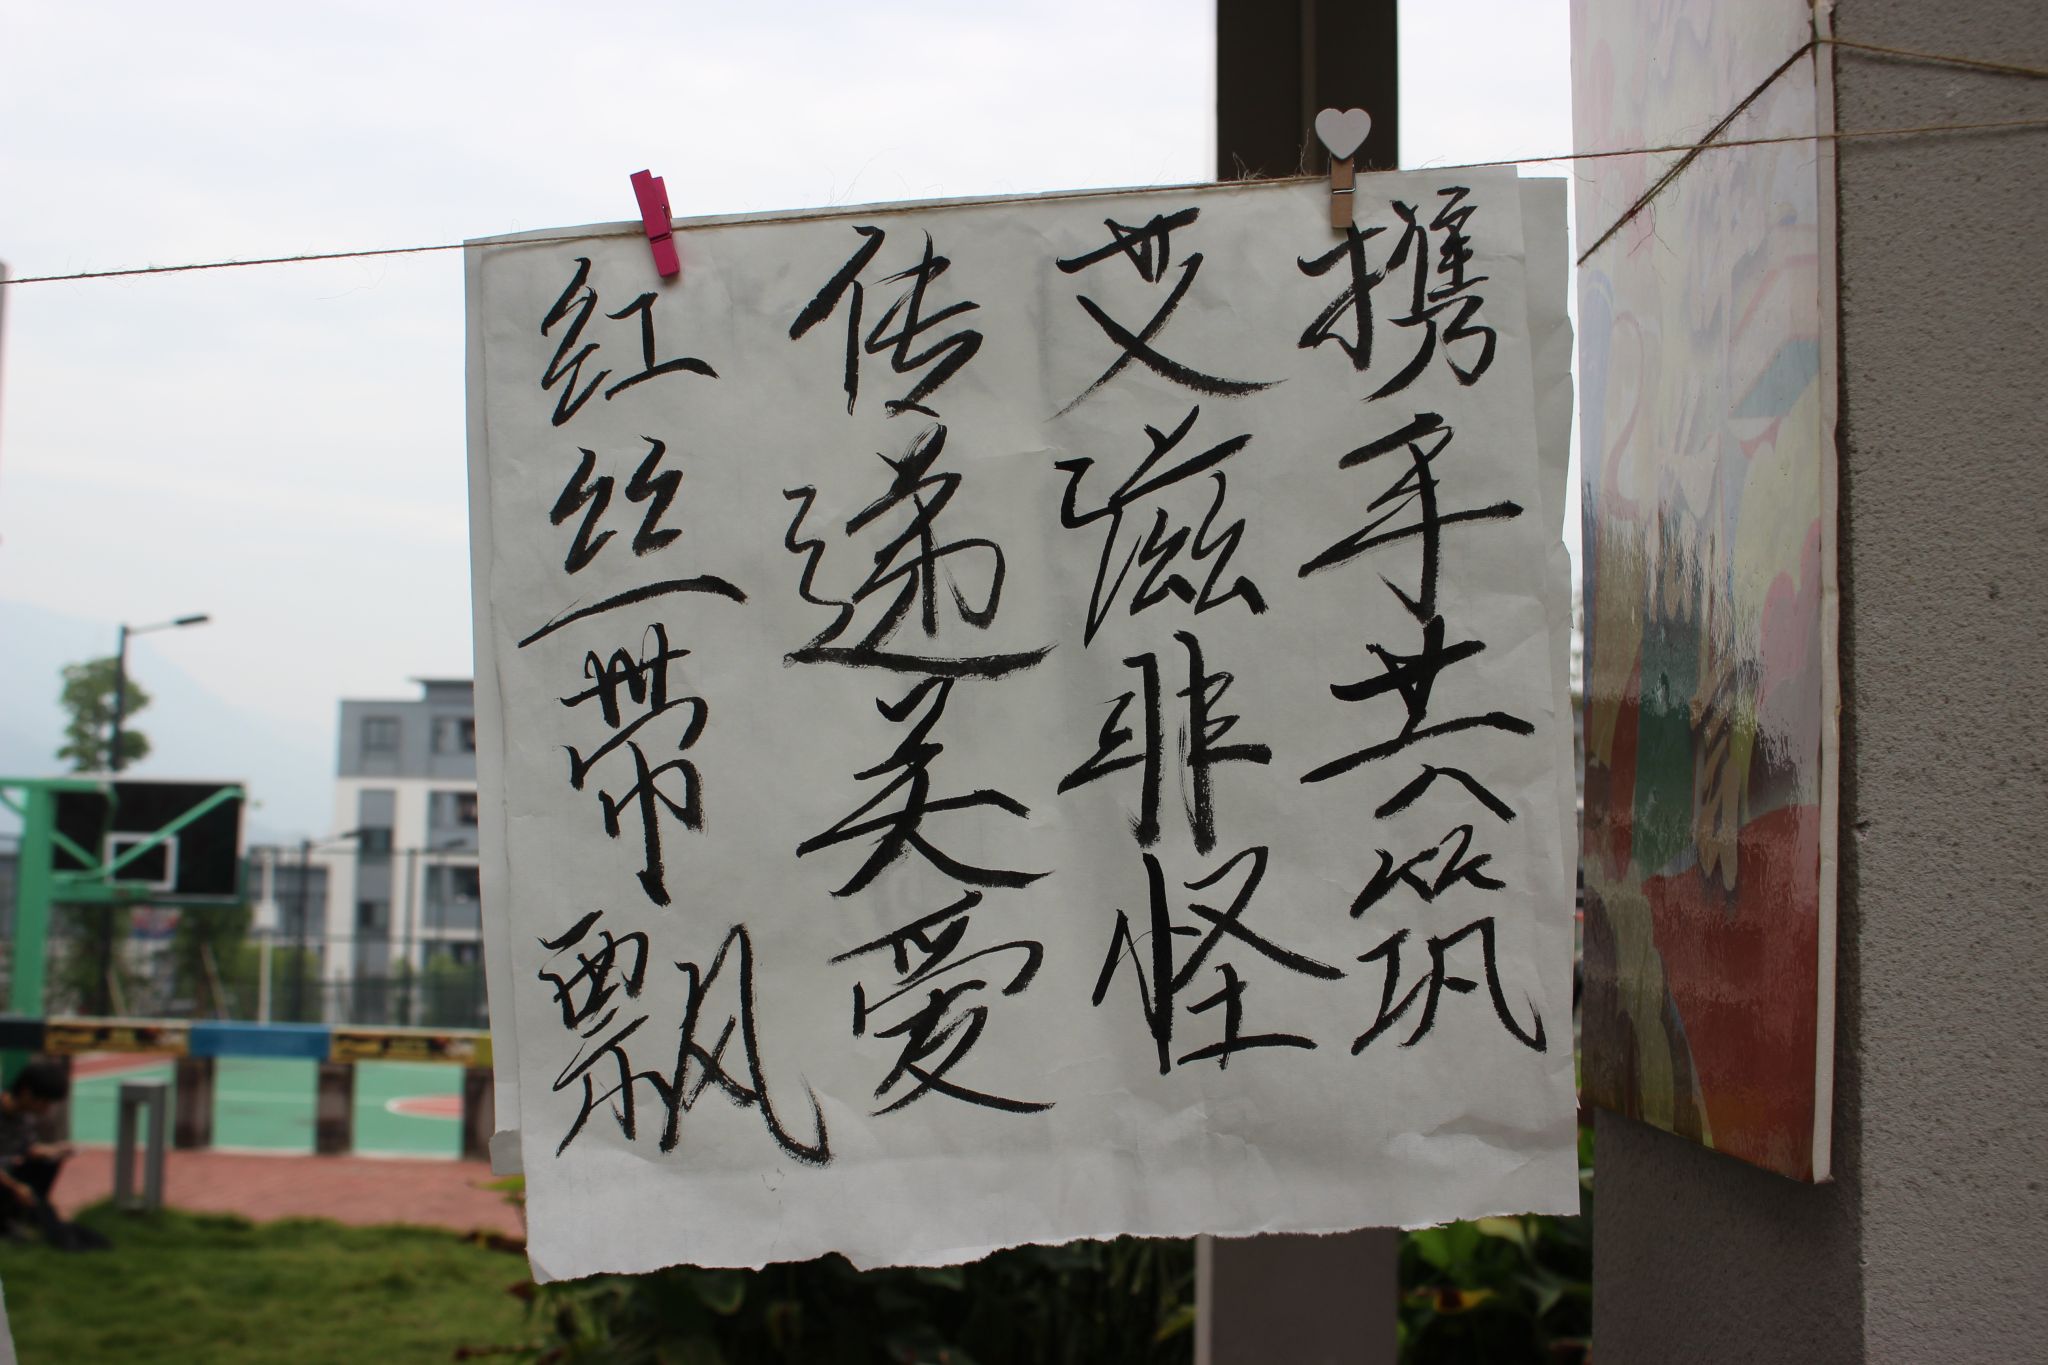 携手共筑
艾滋非怪
传递关爱
红丝带飘